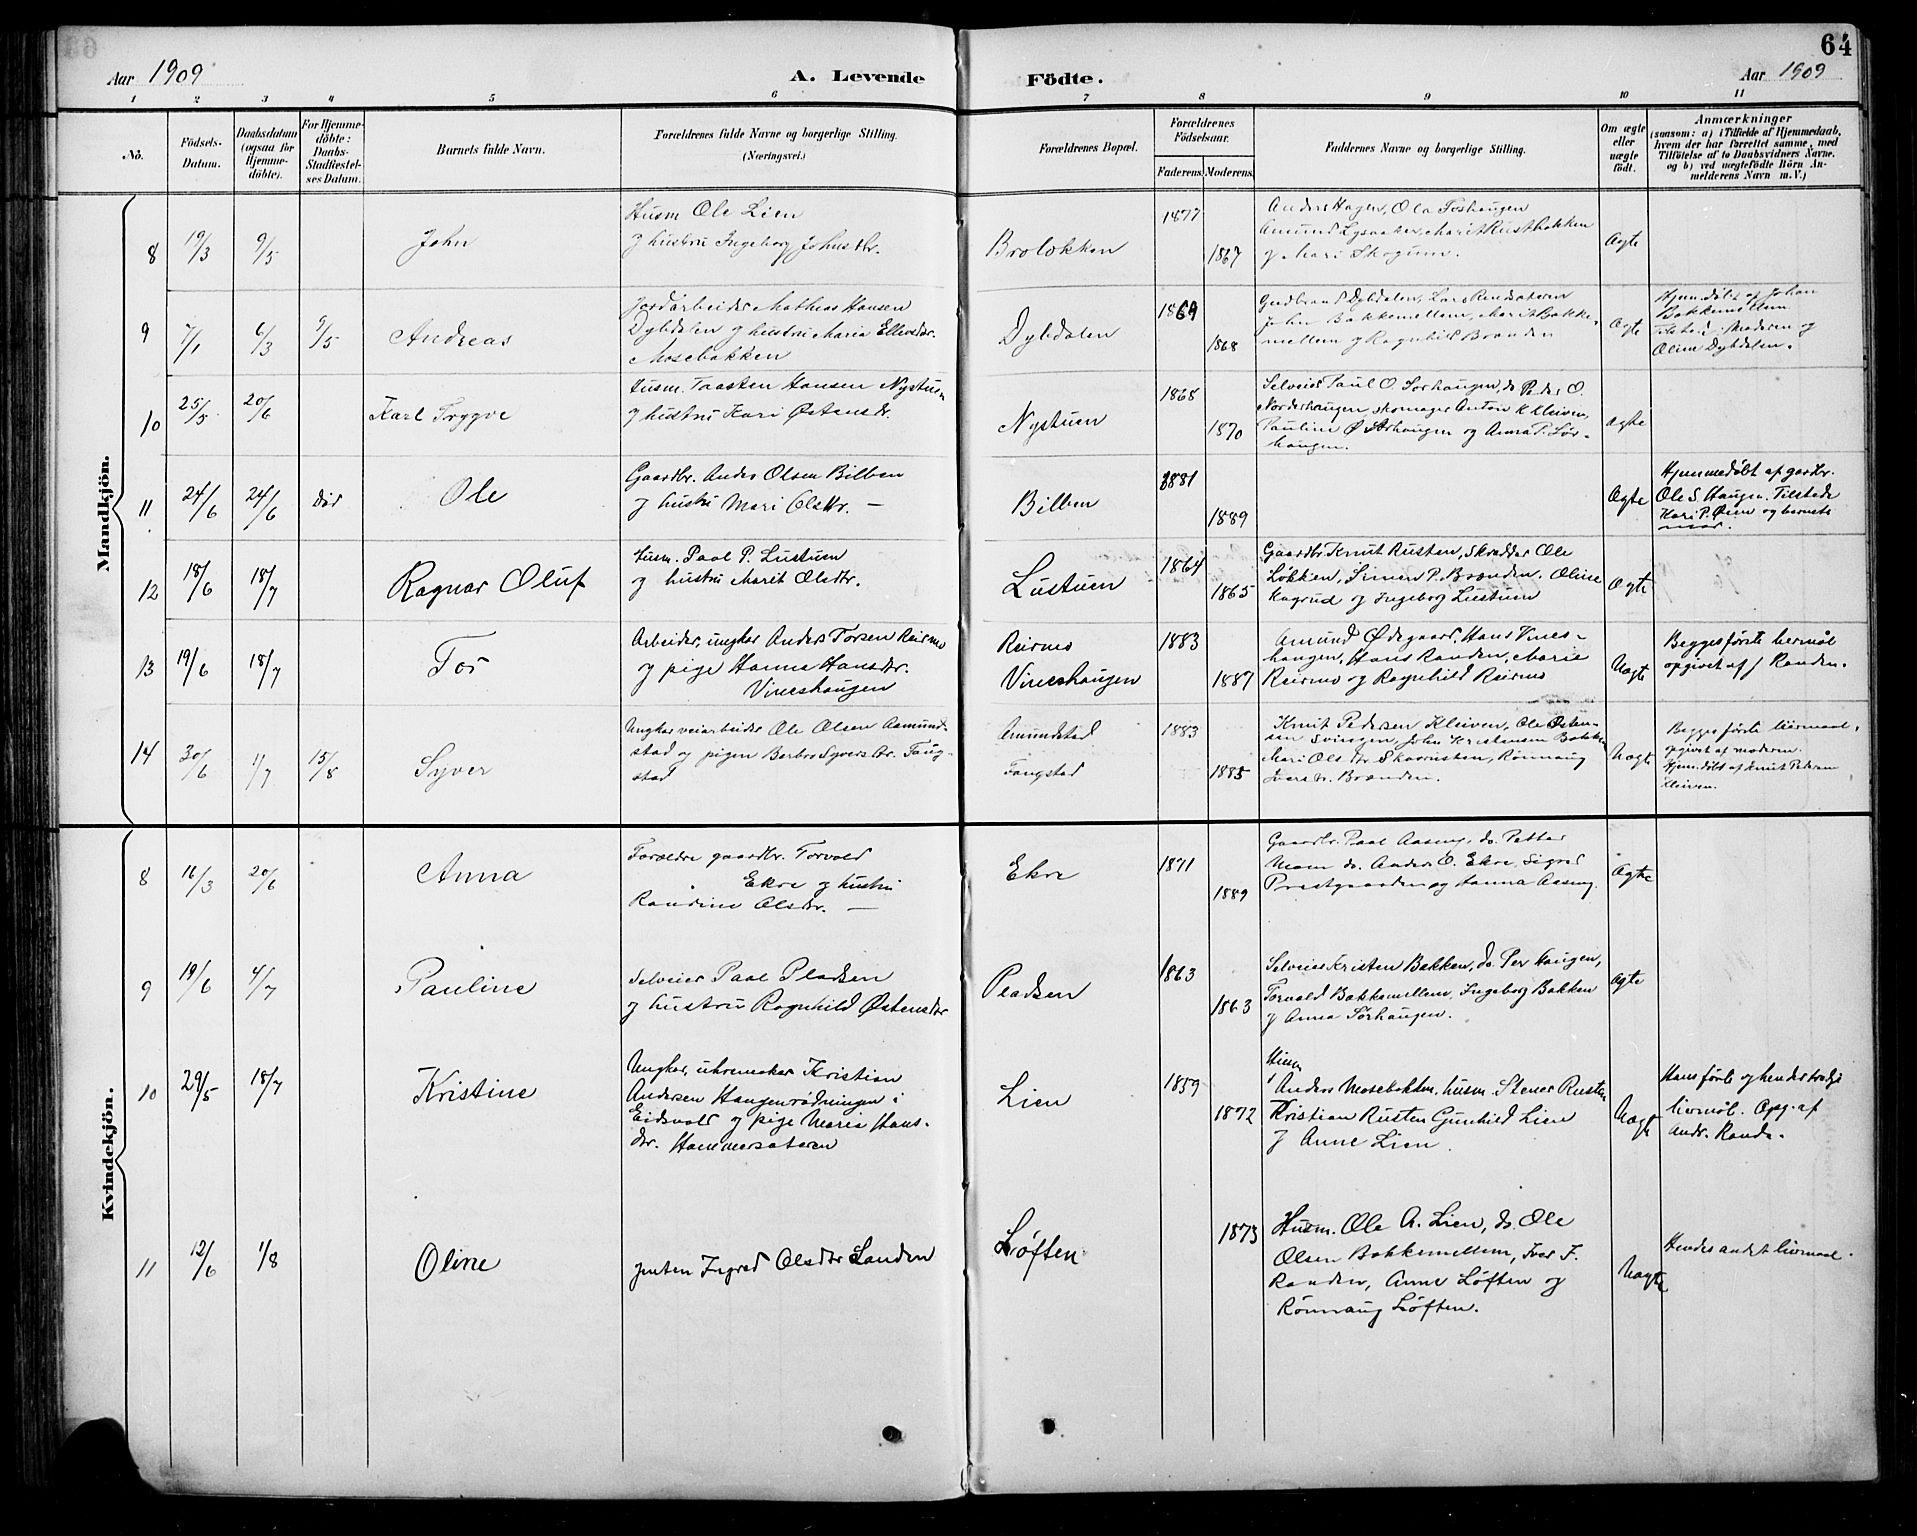 64
Aar 1909
A. Levende
Fødte.
Aar 1909
1 2 3 4 5 6 7 8 9 10 11
No.
Fødsels-
Datum.
Daabsdatum
(ogsaa for
Hjemme-
döbte).
For Hjemme-
döbte:
Daabs-
Stadfæstel-
ses Datum.
Barnets fulde Navn.
Forældrenes fulde Navne og borgerlige Stilling.
(Næringsvei.)
Forældrenes Bopæl.
Forældrenes
Födselsaar.
Faderens. Moderens.
Faddernes Navne og borgerlige Stilling.
Om ægte
eller
uægte
födt.
Anmærkninger
(saasom: a) i Tilfælde af Hjemmedaab,
hvem der har forrettet samme, med
Tilföielse af to Daabsvidners Navne,
og b) ved uægtefödte Börn An-
melderens Navn m. V.)
Mandkjön.
8
19/3
9/5
John
Husm Ole Lien
og hustru Ingeborg Johnsdr.
Broløkken
1877
1867
Anders Hagen, Ola
Amund Marit Rustbakken
og Mari Skogum.
Ægte
9
7/1
6/3
9/5
Andreas
Jordarbeider Mathias Hansen
Dybdalen og hustru Maria Ellevsdr.
Mosebakken
Dybdalen
1869
1868
Gudbrand Dybdalen, Lars
John Bakkemellem, Marit Bakke-
mellem og Ragnhild Brænden
Ægte
Hjem.døbt af Johan
Bakkemellem
Tilsted: Moderen og
Oline Dybdalen.
10
25/5
20/6
Karl Trygve
Husm. Taasten Hansen Nystuen
og hustru Kari Østensdr.
Nystuen
1868
1870
Selveier Paul O. Sørhaugen, do Peder O.
Nordenhaugen, skomager Anton K Kleiven,
Pauline Ø Sørhaugen og Anna P. Sør-
haugen.
Ægte
11
24/6
24/6
død
Ole
Gaardbr. Anders Olsen Bilben
og hustru Mari Olsdtr. —
Bilben
1881
1889
Ægte
Hjemmedøbt af gardbr.
Ole S. Haugen. Tilstede
Kari P. Øien og barnets
mor.
12
18/6
18/7
Ragnar Oluf
Husm. Paal P. Lustuen
og hustru Marit Olsdtr.
Lustuen
1864
1865
Gaardbr Knut Rusten, skrædder Ole
Løkken, Simen P. Brænden, Oline
Hagrud og Ingeborg Lustuen
Ægte
13
19/6
18/7
Tor
Arbeider, ungkar Anders Torsen Reirmo
og pige Hanna Hansdr.
Vineshaugen
Reirmo
Vineshaugen
1883
1887
Amund Ødegaard, Hans Vines-
haugen, Hans Randen, Marie
Reirmo og Ragnhild Reirmo
Uægte
Begges første leirmål
opgivet af J Randen.
14
30/6
1/7
15/8
Syver
Ungkar veiarbeider Ole Olsen Aamund-
stad og pigen Barbro Syversdr. Faug-
stad
Amundstad
Faugstad
1883
1885
Knut Pedersen Kleiven, Ole Østen-
sen Svingen, John Kristensen Bakken
Mari Olsdtr Rønnaug
Iversdr. Brænden.
Uægte
Begges første leirmaal,
opgivet af moderen.
Hjem.døbt af Knut Pedersen
Kleiven.
Kvindekjön.
8
16/3
20/6
Anna
Forældre gaardbr. Torvald
Ekre og hustru
Randine Olsdr. —
Ekre
1871
1889
Gaardbr. Paal Aaseng, do. Petter
Moen do. Anders O. Ekre, Sigrid
Prestgaarden og Hanna Aaseng.
Ægte
9
19/6
4/7
Pauline
Selveier Paal Pladsen
og hustru Ragnhild Østensdtr
Pladsen
1863
1863
Selveier Kristen Bakken, do. Per Haugen,
Torvald Bakkemellem, Ingeborg Bakken
og Anna Sørhaugen.
Ægte
10
29/5
18/7
Kristine
Ungkar, uhremaker Kristian
Andersen Haugenrødningen i
Eidsvold og pige Maria Hans-
dr. Hammersæteren
Lien
1859
1872
Husm
Anders Mosebakken, husm. Stener Rusten
Kristian Rusten Gunhild Lien
og Anne Lien.
Uægte
Hans første og hendes tredje
leirmål. Opg. af
Andr. Randen.
11
12/6
1/8
Oline
Jenten Ingrid Olsdtr Sanden
Løften
1873
Husm. Ole A. Lien, do. Ole
Olsen Bakkemellem, Iver I.
Randen, Anne Løften og
Rønnaug Løften.
Uægte
Hendes andet leirmaal.